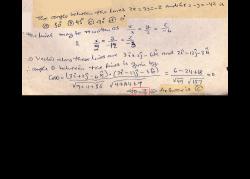 The angle between the lines 2x=3y=-z and 6x=-y=-4z is
(a) 30° (b) 45° (c) 90° (d) 0°
the lines may be rewritten as x/3 = y/2 = z/-6
& x/2 = y/-12 = z/-3
Vectors along these lines are 3i+2j-6k and 2i-12j-3k
angle θ between the lines is given by
Cosθ = (3i+2j-6k).(2i-12j-3k) / √9+4+36 √4+144+9 = 6-24+18 / √49 √157 = 0